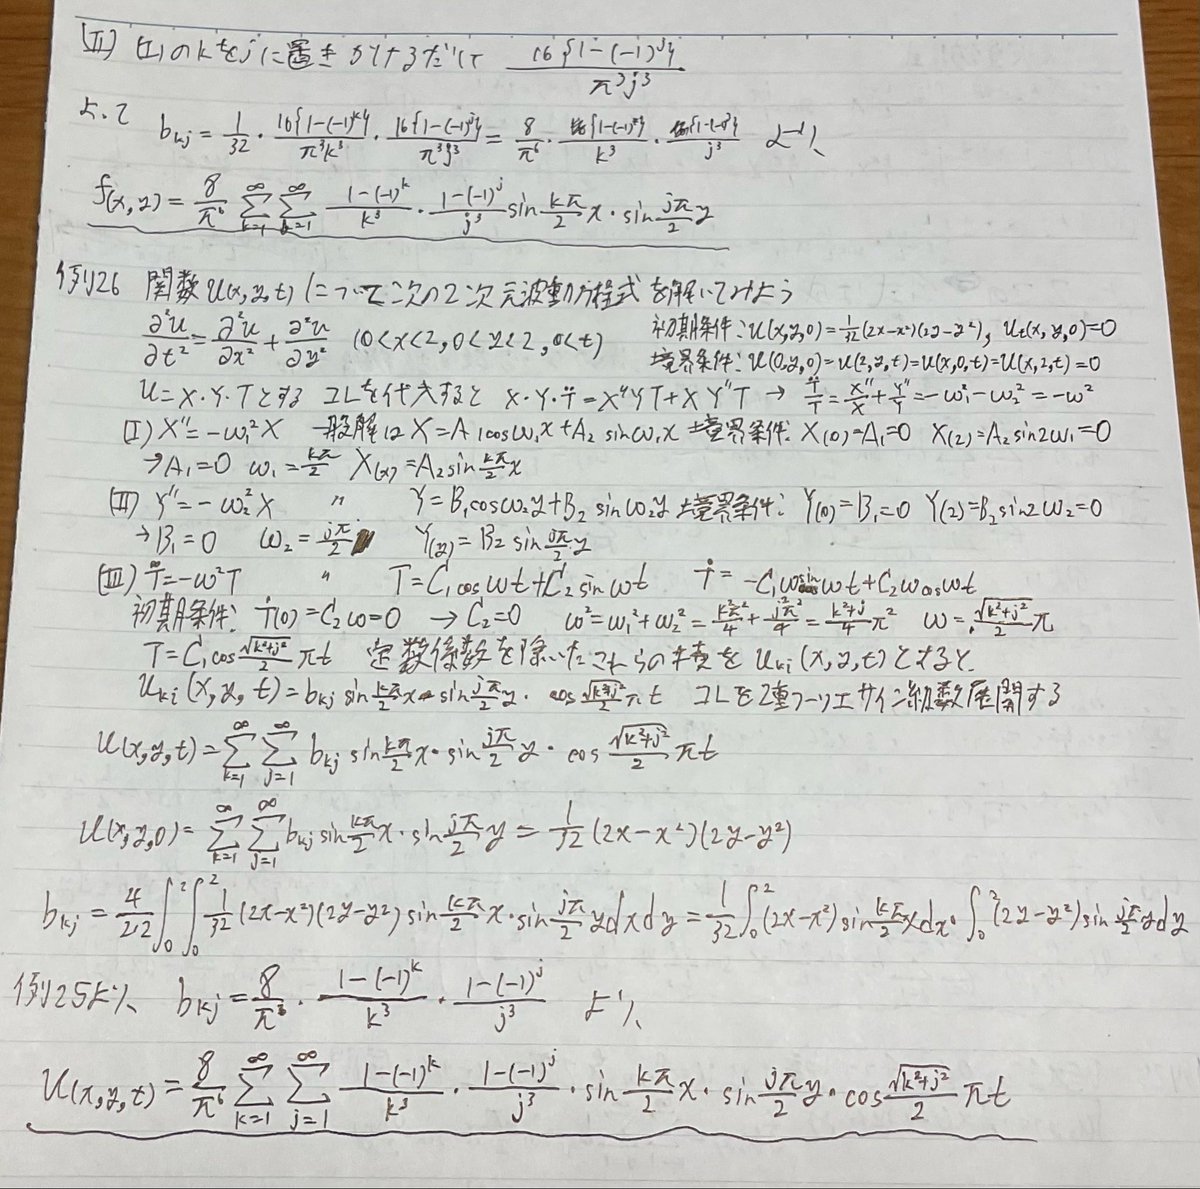 (II) (I)のkをjに置きかけるだけで 16{1-(-1)^j}/π³j³
よって b_kj = 1/32・16{1-(-1)^k}/π³k³・16{1-(-1)^j}/π³j³ = 8/π⁶・{1-(-1)^k}/k³・{1-(-1)^j}/j³ より、
f(x,y) = 8/π⁶ Σ[k=1,∞] Σ[k=1,∞] 1-(-1)^k/k³・1-(-1)^j/j³ sin kπ/2 x・sin jπ/2 y
例26 関数u(x,y,t)について次の2次元波動方程式を解いてみよう
∂²u/∂t² = ∂²u/∂x² + ∂²u/∂y² (0<x<2, 0<y<2, 0<t) 初期条件: u(x,y,0)=1/32(2x-x²)(2y-y²), u_t(x,y,0)=0
境界条件: u(0,y,0)=u(2,y,t)=u(x,0,t)=u(x,2,t)=0
u=X・Y・Tとする コレを代入すると X・Y・T̈=X''YT+XY''T → T̈/T=X''/X+Y''/Y=-ω₁²-ω₂²=-ω²
(I) X''=-ω₁²X 一般解は X=A₁cosω₁x+A₂sinω₁x 境界条件: X(0)=A₁=0 X(2)=A₂sin2ω₁=0
→A₁=0 ω₁=kπ/2 X(x)=A₂sin kπ/2 x
(II) Y''=-ω₂²X 〃 Y=B₁cosω₂y+B₂sinω₂y 境界条件: Y(0)=B₁=0 Y(2)=B₂sin2ω₂=0
→B₁=0 ω₂=jπ/2 Y(y)=B₂sin jπ/2 y
(III) T̈=-ω²T 〃 T=C₁cosωt+C₂sinωt Ṫ=-C₁ωsinωt+C₂ωcosωt
初期条件: Ṫ(0)=C₂ω=0 →C₂=0 ω²=ω₁²+ω₂²=k²π²/4+j²π²/4=k²+j/4 π² ω=√(k²+j²)/2 π
T=C₁cos √(k²+j²)/2 πt 定数係数を除いたこれらの積を u_kj(x,y,t)とすると、
u_kj(x,y,t)=b_kj sin kπ/2 x・sin jπ/2 y・cos √(k²+j²)/2 πt コレを2重フーリエサイン級数展開する
u(x,y,t)=Σ[k=1,∞] Σ[j=1,∞] b_kj sin kπ/2 x・sin jπ/2 y・cos √(k²+j²)/2 πt
u(x,y,0)=Σ[k=1,∞] Σ[j=1,∞] b_kj sin kπ/2 x・sin jπ/2 y = 1/32 (2x-x²)(2y-y²)
b_kj = 4/2・2 ∫₀²∫₀² 1/32 (2x-x²)(2y-y²) sin kπ/2 x・sin jπ/2 y dxdy = 1/32 ∫₀²(2x-x²)sin kπ/2 x dx・∫₀²(2y-y²)sin jπ/2 y dy
例25より、 b_kj = 8/π³・1-(-1)^k/k³・1-(-1)^j/j³ より、
u(x,y,t) = 8/π⁶ Σ[k=1,∞] Σ[j=1,∞] 1-(-1)^k/k³・1-(-1)^j/j³・sin kπ/2 x・sin jπ/2 y・cos √(k²+j²)/2 πt